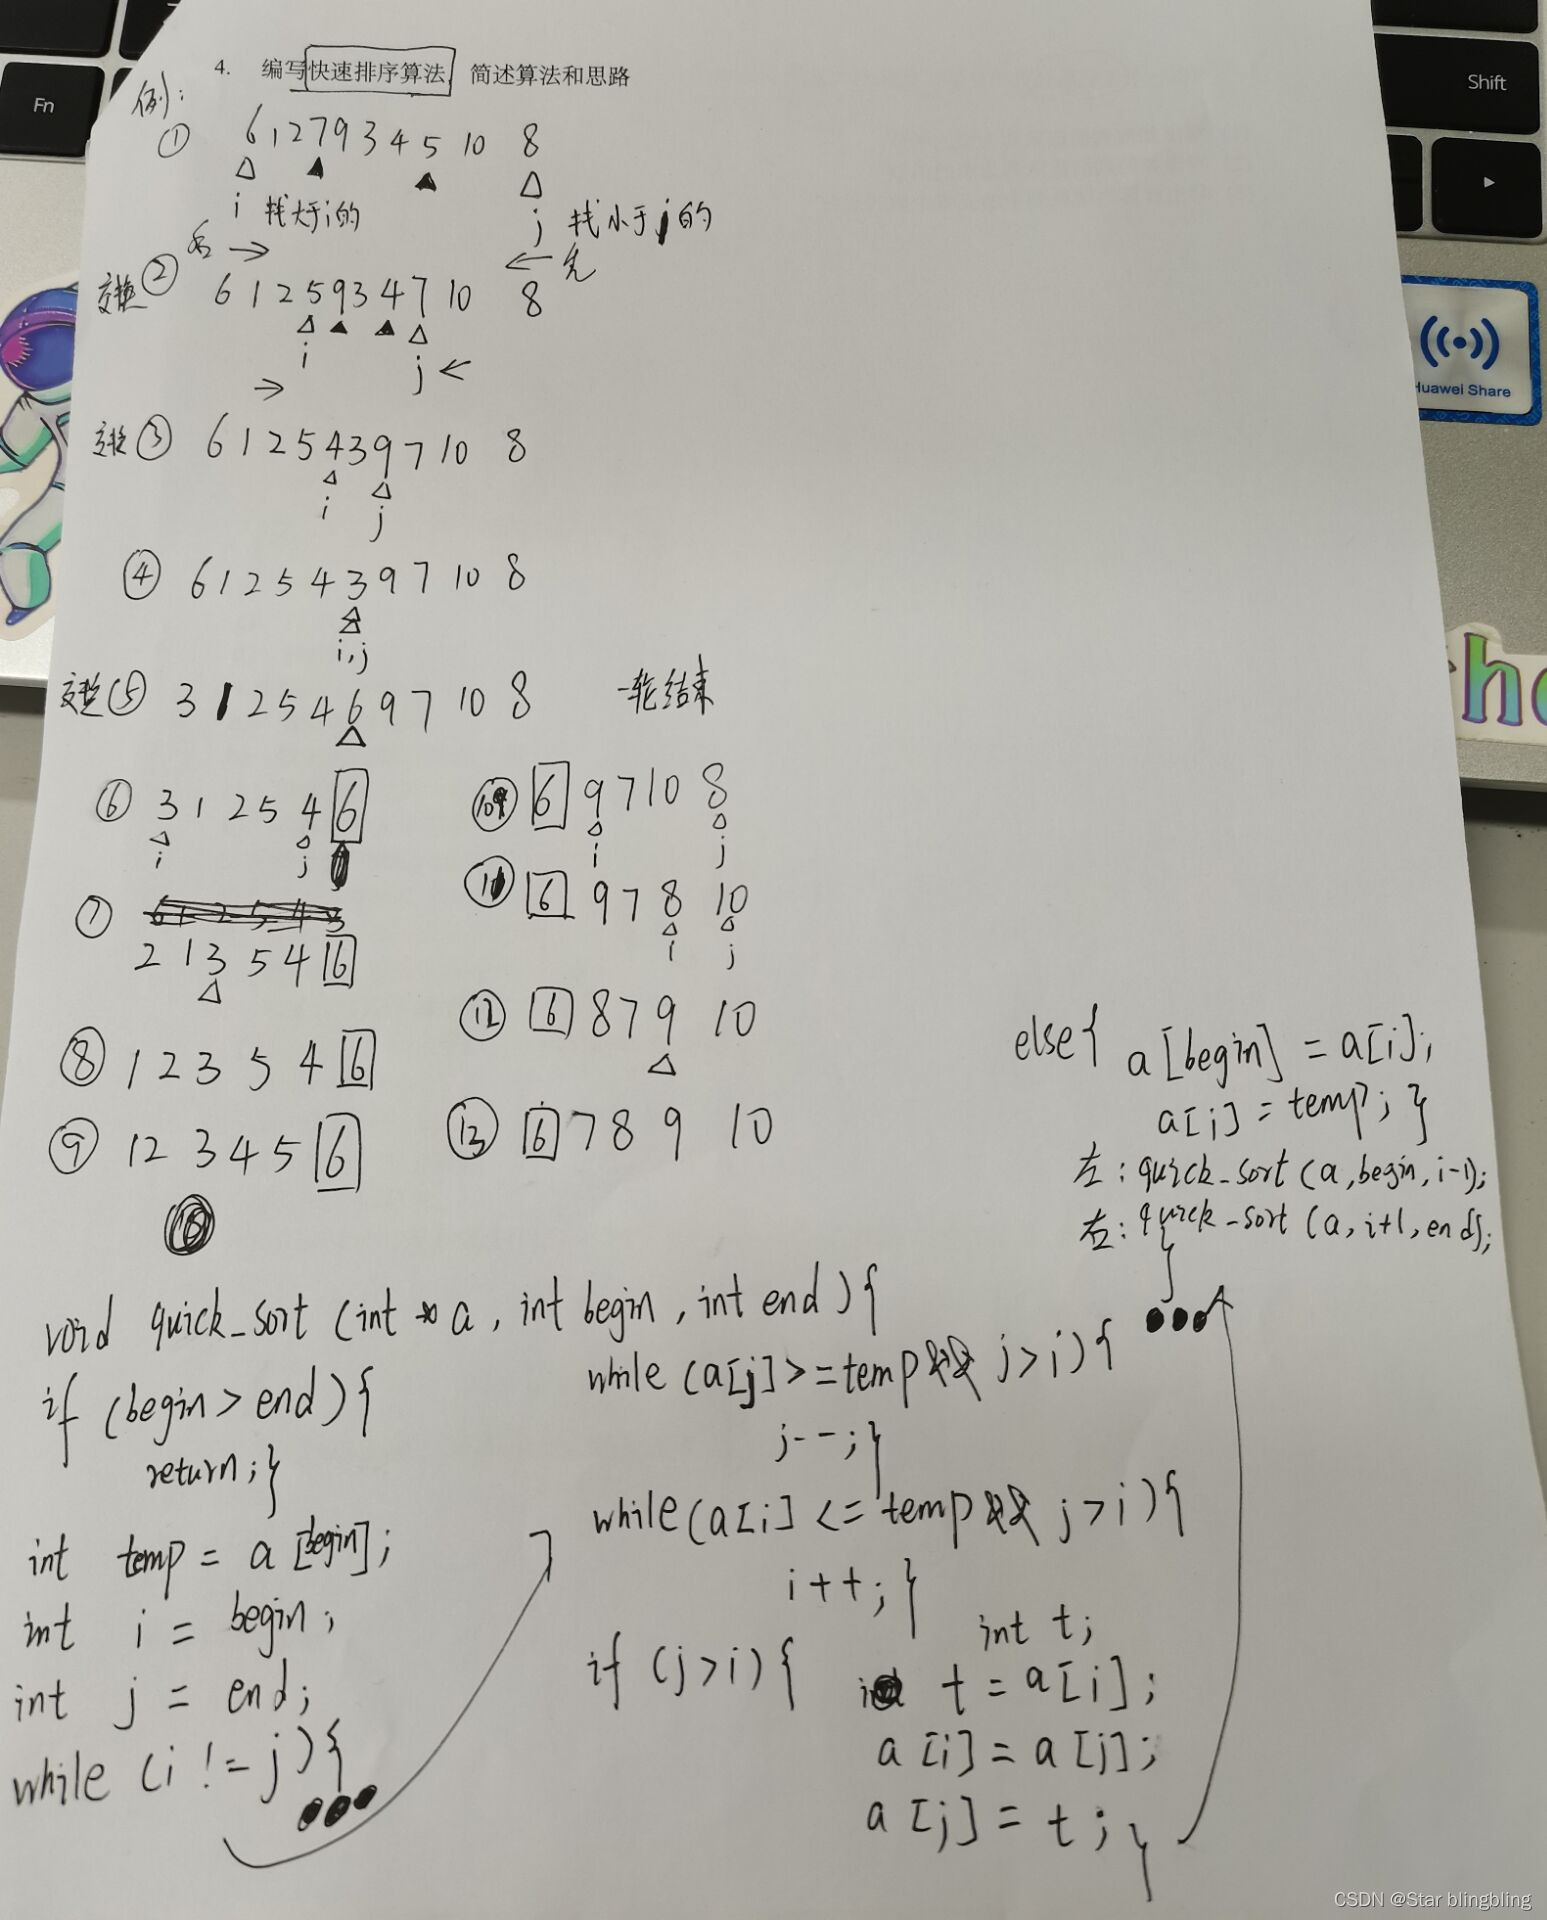 Fn
Shift
Huawei Share
4. 编写快速排序算法, 简述算法和思路
例:
① 6 1 2 7 9 3 4 5 10 8
i 找大于i的
j 找小于j的
先
交换 ② 6 1 2 5 9 3 4 7 10 8
i
j
交换 ③ 6 1 2 5 4 3 9 7 10 8
i
j
④ 6 1 2 5 4 3 9 7 10 8
i,j
交换 ⑤ 3 1 2 5 4 6 9 7 10 8 一轮结束
⑥ 3 1 2 5 4 6
i
j
⑦ 6 1 2 5 4 3
2 1 3 5 4 6
⑧ 1 2 3 5 4 6
⑨ 1 2 3 4 5 6
⑩ 6 9 7 10 8
i
j
⑪ 6 9 7 8 10
i
j
⑫ 6 8 7 9 10
⑬ 6 7 8 9 10
void quick_sort (int * a, int begin, int end){
if (begin > end){
return;}
int temp = a[begin];
int i = begin;
int j = end;
while (i != j){
while (a[j]>=temp && j>i){
j--;}
while(a[i] <= temp && j>i){
i++;}
if (j>i){
int t;
t = a[i];
a[i] = a[j];
a[j] = t;}
else{ a[begin] = a[i];
a[i] = temp; }
左: quick_sort (a,begin,i-1);
右: quick_sort (a,i+1,end);
}
ho
CSDN @Star blingbling